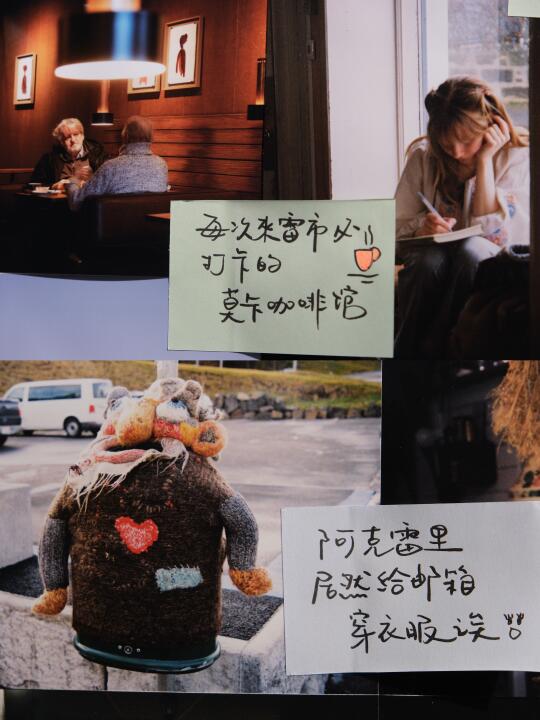 每次来雷市必
打卡的
莫卡咖啡馆
阿克雷里
居然给邮箱
穿衣服诶